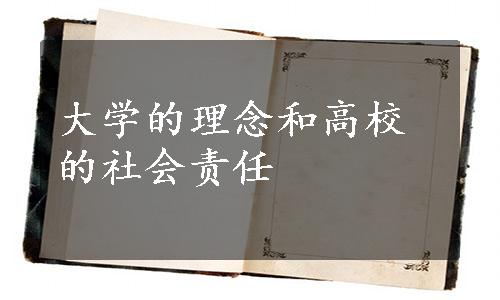 大学的理念和高校
的社会责任